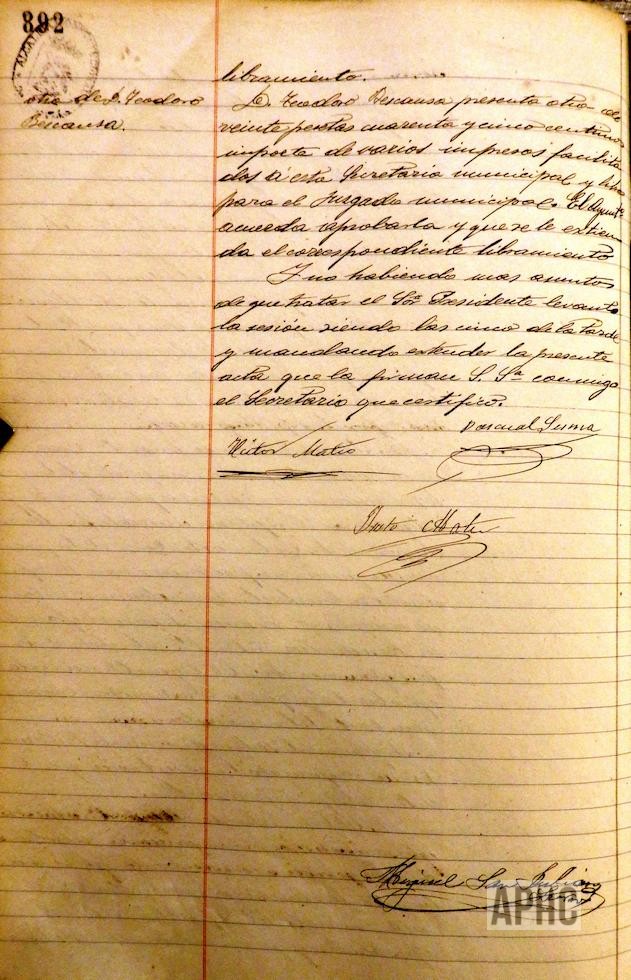 892
otra de D. Teodoro
Bescansa.
libramiento.
D. Teodoro Bescansa presenta otra de
veinte pesetas cuarenta y cinco centimos
importe de varios impresos facilita
dos á esta Secretaria municipal y
para el Juzgado municipal. El Ayunt.º
acuerda aprobarla y que se le extien
da el correspondiente libramiento
Y no habiendo mas asuntos
de que tratar el Sor. Presidente levanto
la sesión siendo las cinco de la tarde
y mandando extender la presente
acta que la firman S. Sª conmigo
el Secretario que certifico.
Pascual
Victor Mateo
Mateo
Miguel San Julian
APHC